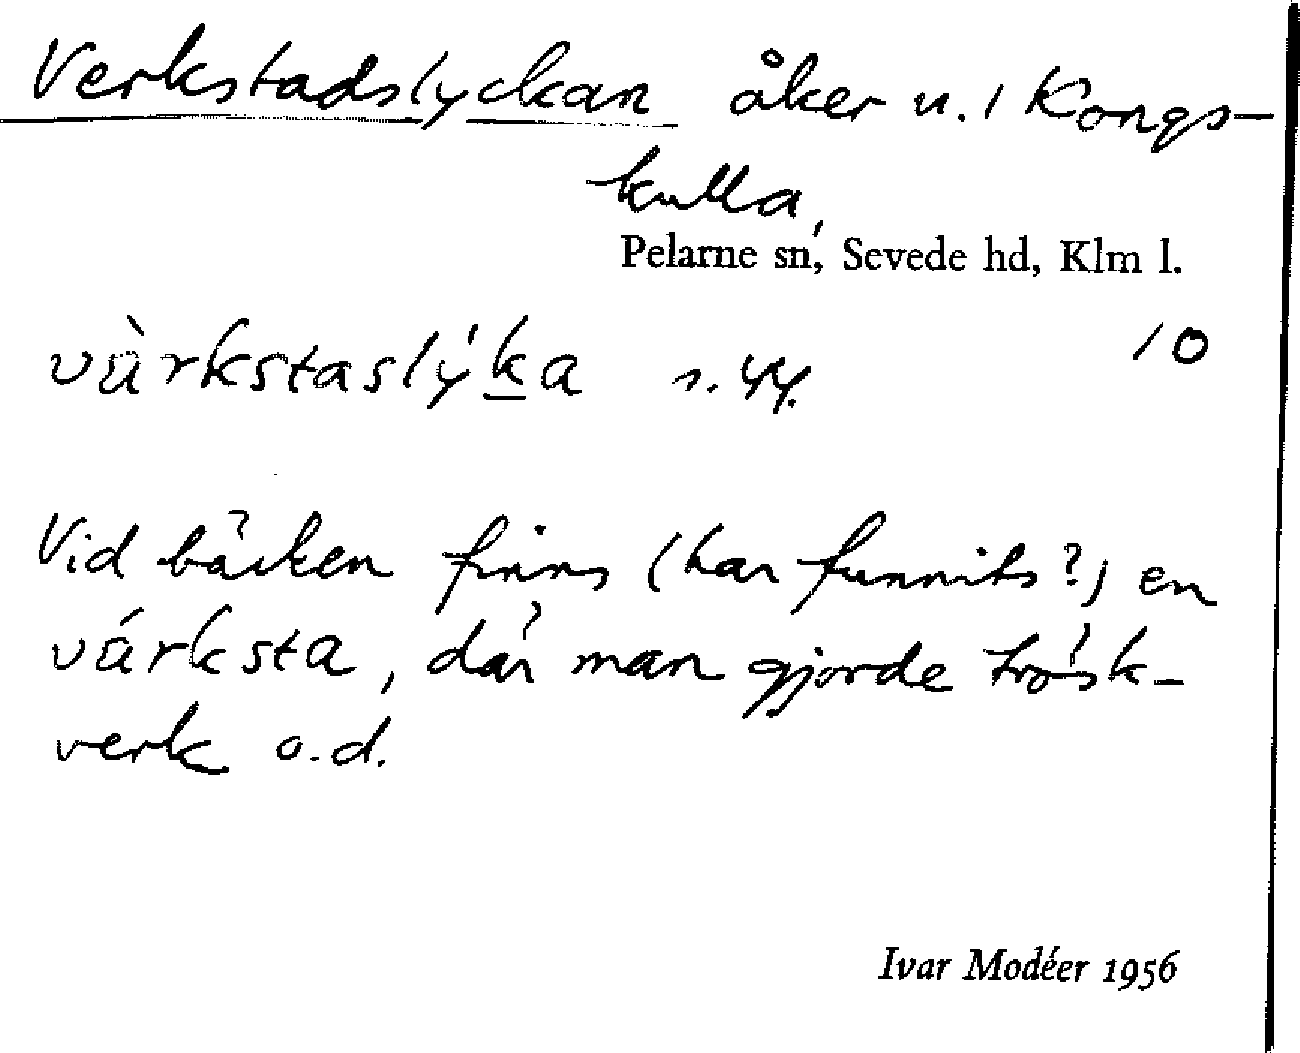 Verkstadslyckan åker u. 1 Kongs-
kulla,
Pelarne sn, Sevede hd, Klm l.
10
vàrkstaslýka s. 44.
Vid bäcken finns (har funnits?) en
várksta, där man gjorde trösk-
verk o.d.
Ivar Modéer 1956